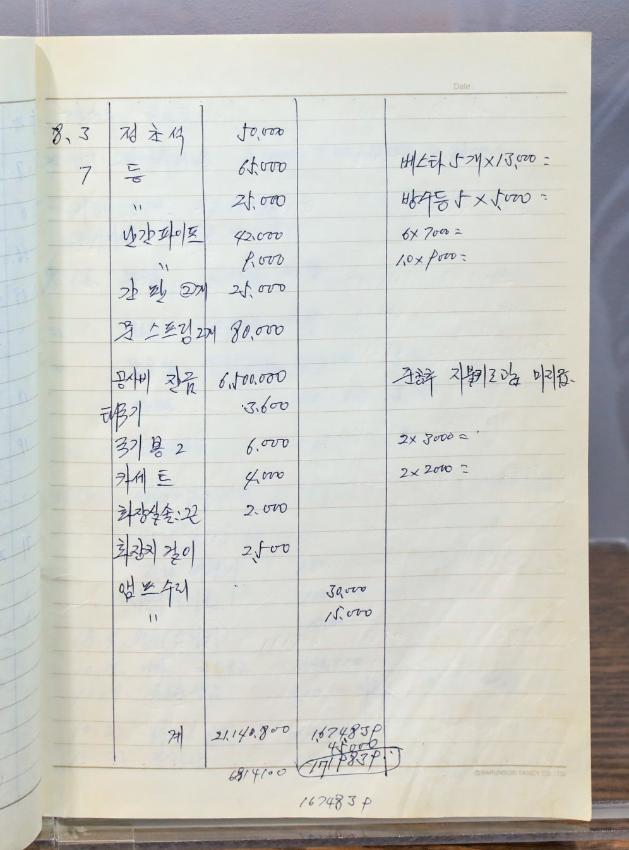 Date
8.3 정초석 50,000
7 등 65,000 베스타 5개×13,000=
" 25,000 방수등 5×5,000=
난간파이프 42,000 6×7000=
" 9,000 1.0×9000=
간판 2개 25,000
문 스프링 2개 80,000
공사비 잔금 6,500,000 준공후 지불키로 하고
태극기 3,600
국기봉 2 6,000 2×3000=
카세트 4,000 2×2000=
화장실솔: 2,000
화장지 걸이 2,500
앰프수리 30,000
" 15,000
계 21,140,800 1,674,839
45,000
6814100 1,719,839
1674839
©BARUNSON FANCY CO., LTD